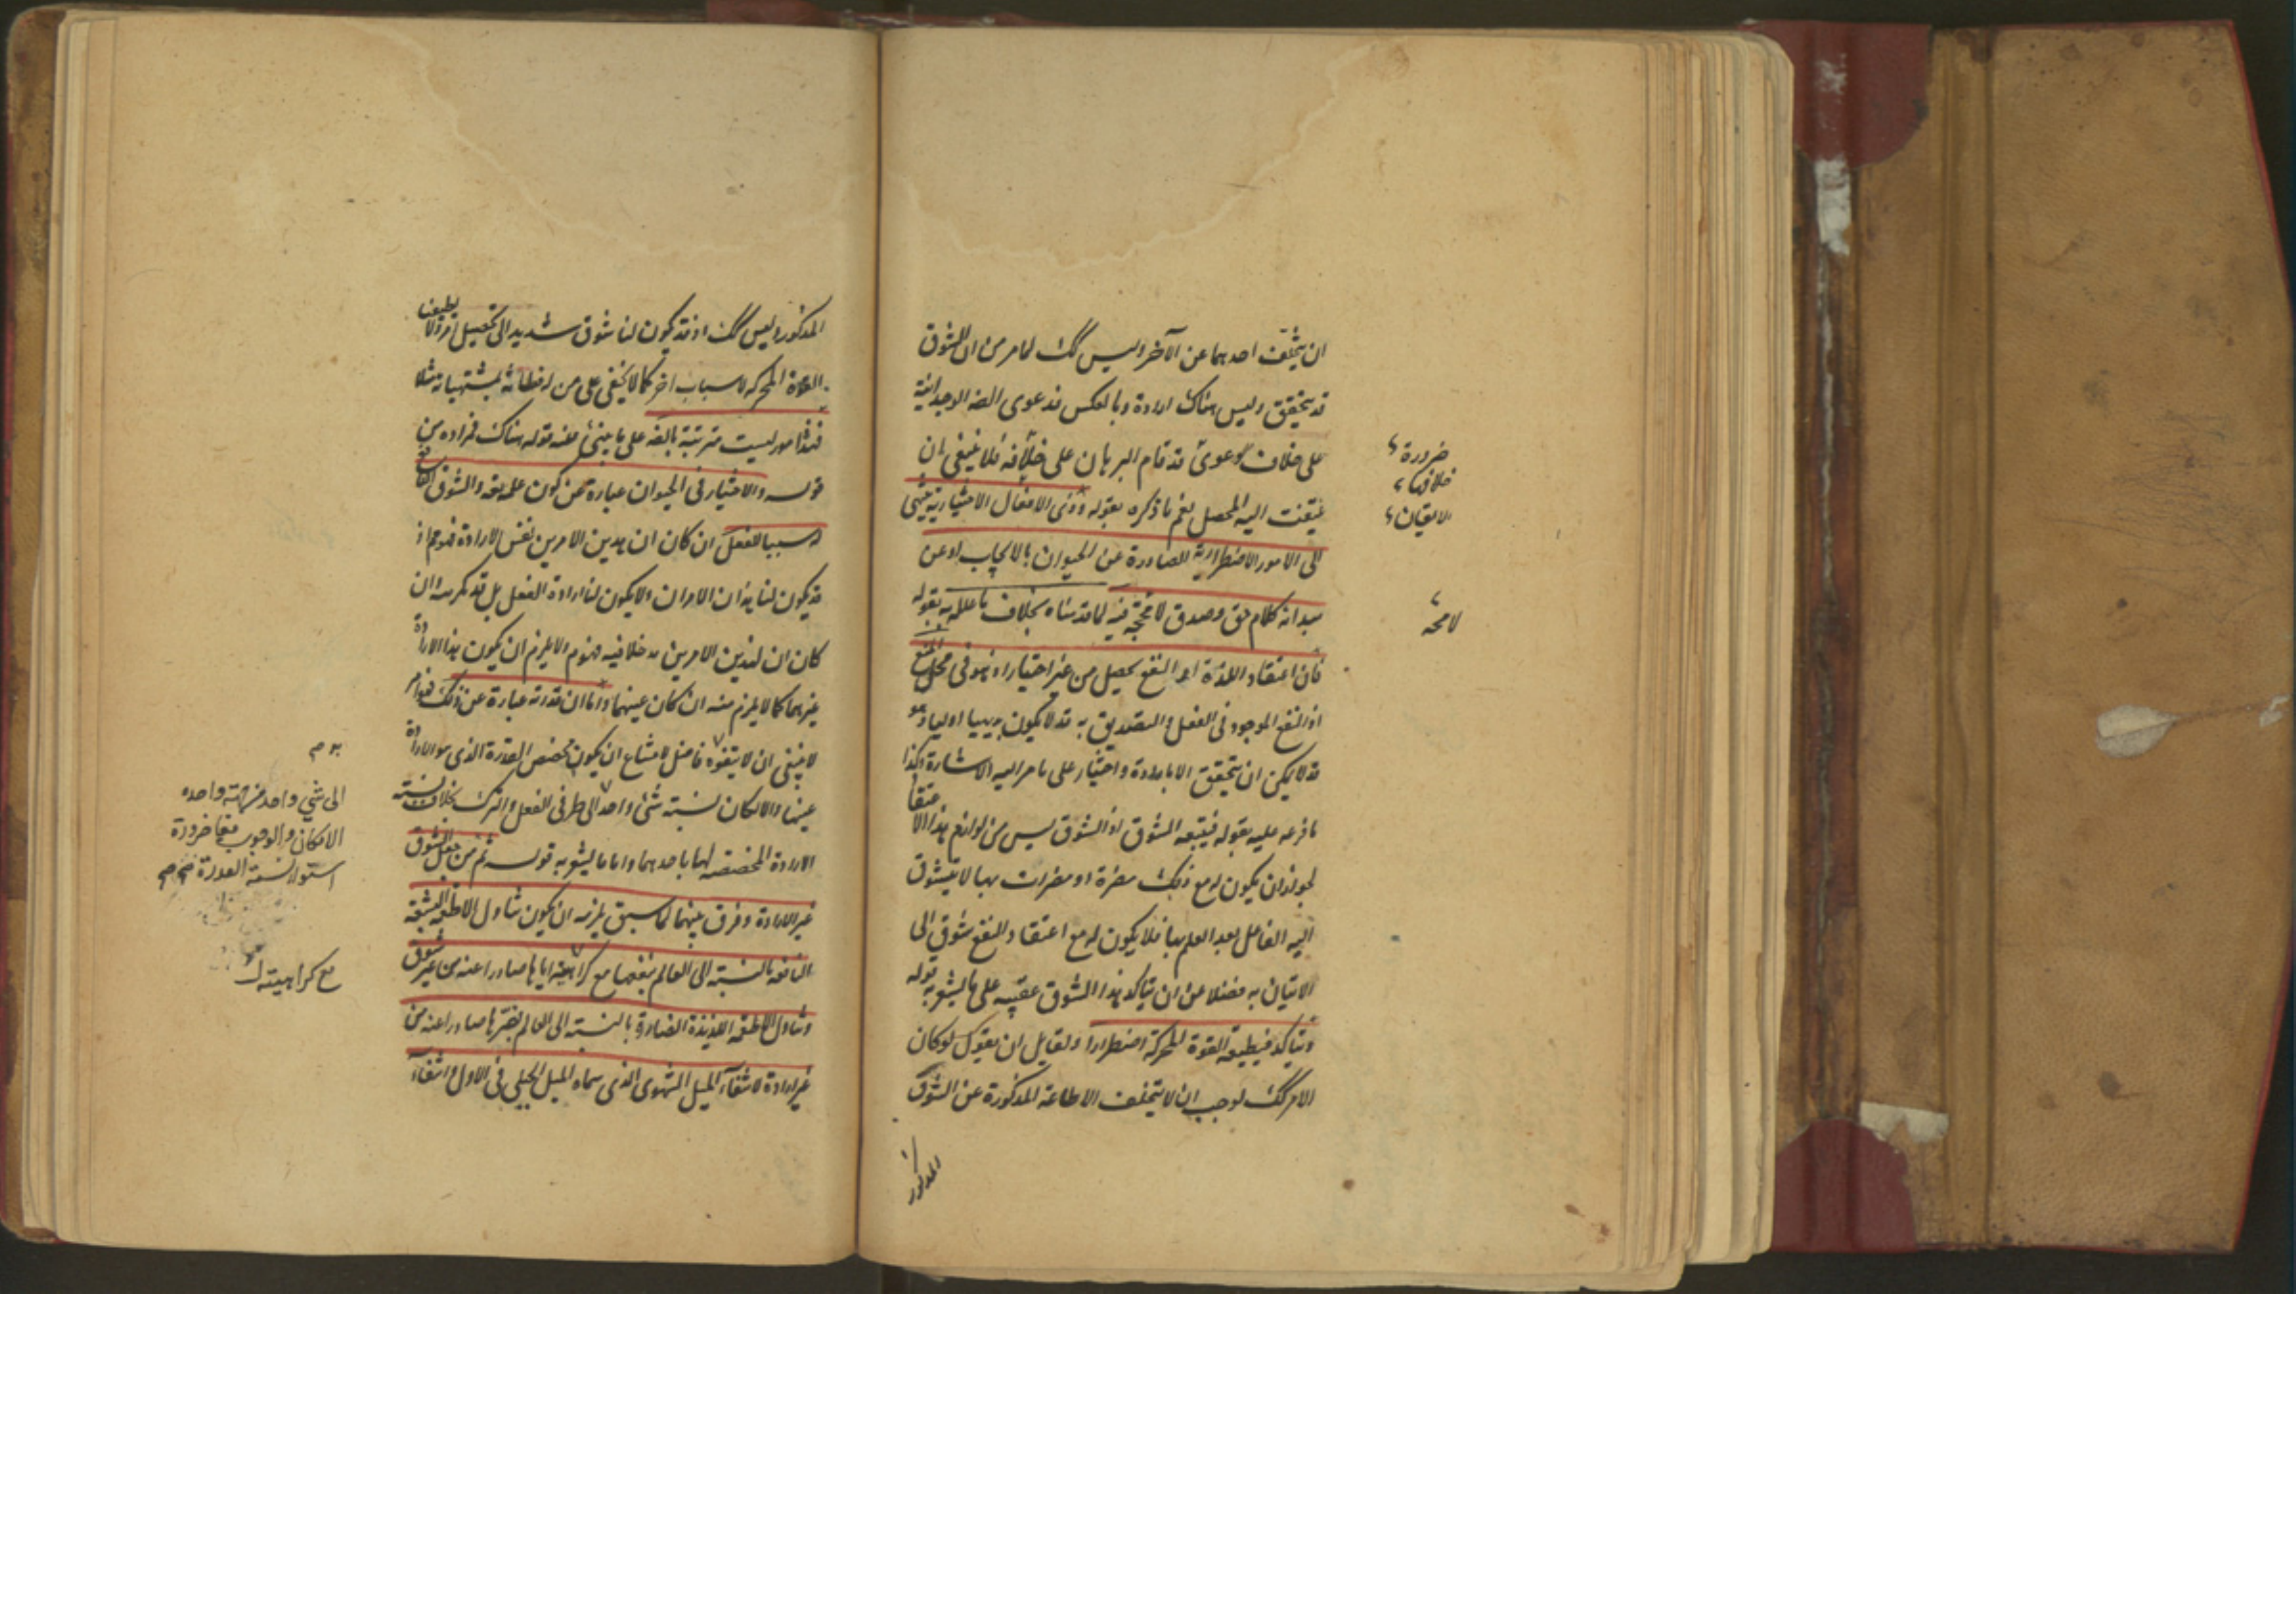 ان يتخلف احدهما عن الآخر وليس كك لما مر من ان الشوق
قد يتحقق وليس هناك ارادة وبالعكس فدعوى الضه الوجدانية
على خلاف دعوى قد قام البرهان على خلافه فلا ينبغى ان
يلتفت اليه المحصل نعم ما ذكره بقوله وفى الافعال الاختيارية ينتهى
الى الامور الاضطرارية الصادرة عن الحيوان بالايجاب او عن
مبدا انه كلام حق وصدق لا مجمجة فيه لما قدمناه بخلاف ما علله به بقوله
فان اعتقاد اللذة او النفع يحصل من غير اختيار اذ هو فى محل المنع
اذ النفع الموجود فى الفعل والتصديق به قد لا يكون بديهيا اوليا وهو
قد لا يمكن ان يتحقق الا بارادة واختيار على ما مر اليه الاشارة وكذا
ما فرعه عليه بقوله فيتبعه الشوق اذ الشوق ليس من لوازم هذا الاعتقاد
لجواز ان يكون له مع ذلك مضرة او مضرات بها لا يتشوق
اليه الفاعل بعد العلم بها فلا يكون له مع اعتقاد النفع شوق الى
الاتيان به فضلا عن ان يتاكد هذا الشوق عقيبه على ما يشعر به قوله
ويتاكد فيطيعه القوة المحركة اضطرارا ولقايل ان يقول لو كان
الامر كك لوجب ان لا يتخلف الاطاعة المذكورة عن الشوق
المذكور
ضرورة
خلافها
الايقان
لا محه
المذكور وليس كك اذ قد يكون لنا شوق شديد الى تحصيل امر ولا يطيعنا
القوة المحركة لاسباب اخر كما لا يخفى على من له فطانة بمشتهياته مثلا
فهذا امور ليست مترتبة بالضه على ما ينبئ عنه قوله هناك فمراده من
قوله والاختيار فى الحيوان عبارة عن كون علمه والشوق
له سببا للفعل ان كان ان هذين الامرين نفس الارادة فهو مم اذ
قد يكون لنا هذان الامران ولا يكون لنا ارادة الفعل بل قد نكرهه وان
كان ان لهذين الامرين مدخلا فيه فهو مم الا يلزم ان يكون هذا الارادة
غيرهما كما لا يلزم منه ان كان عينهما واما ان قدرته عبارة عن ذلك فهو امر
لا ينبغى ان لا يتفوه فاضل لامتناع ان يكون مخصص القدرة الذى هو الارادة
عينها والامكان نسبة شئ واحد الى طرفى الفعل والترك بخلاف نسبته
الارادة المخصصة لها باحدهما واما ما يشعر به قوله ثم من جعل الشوق
غير الارادة وفرق بينهما كما سبق يلزمه ان يكون تناول الاطعمة البشعة
النافعة بالنسبة الى العالم بنفعها مع كراهية اياها صادرا عنه من غير شوق
وتناول الاطعمة اللذيذة الضارة بالنسبة الى العالم بضرها صادرا عنه من
غير ارادة لانتفاء الميل الشهوى الذى سماه الميل الجبلى فى الاول وانتفاء
الى شئ واحد من جهة واحدة
الامكان والوجوب معا ضرورة
استواء نسبة القدرة
مع كراهيته له